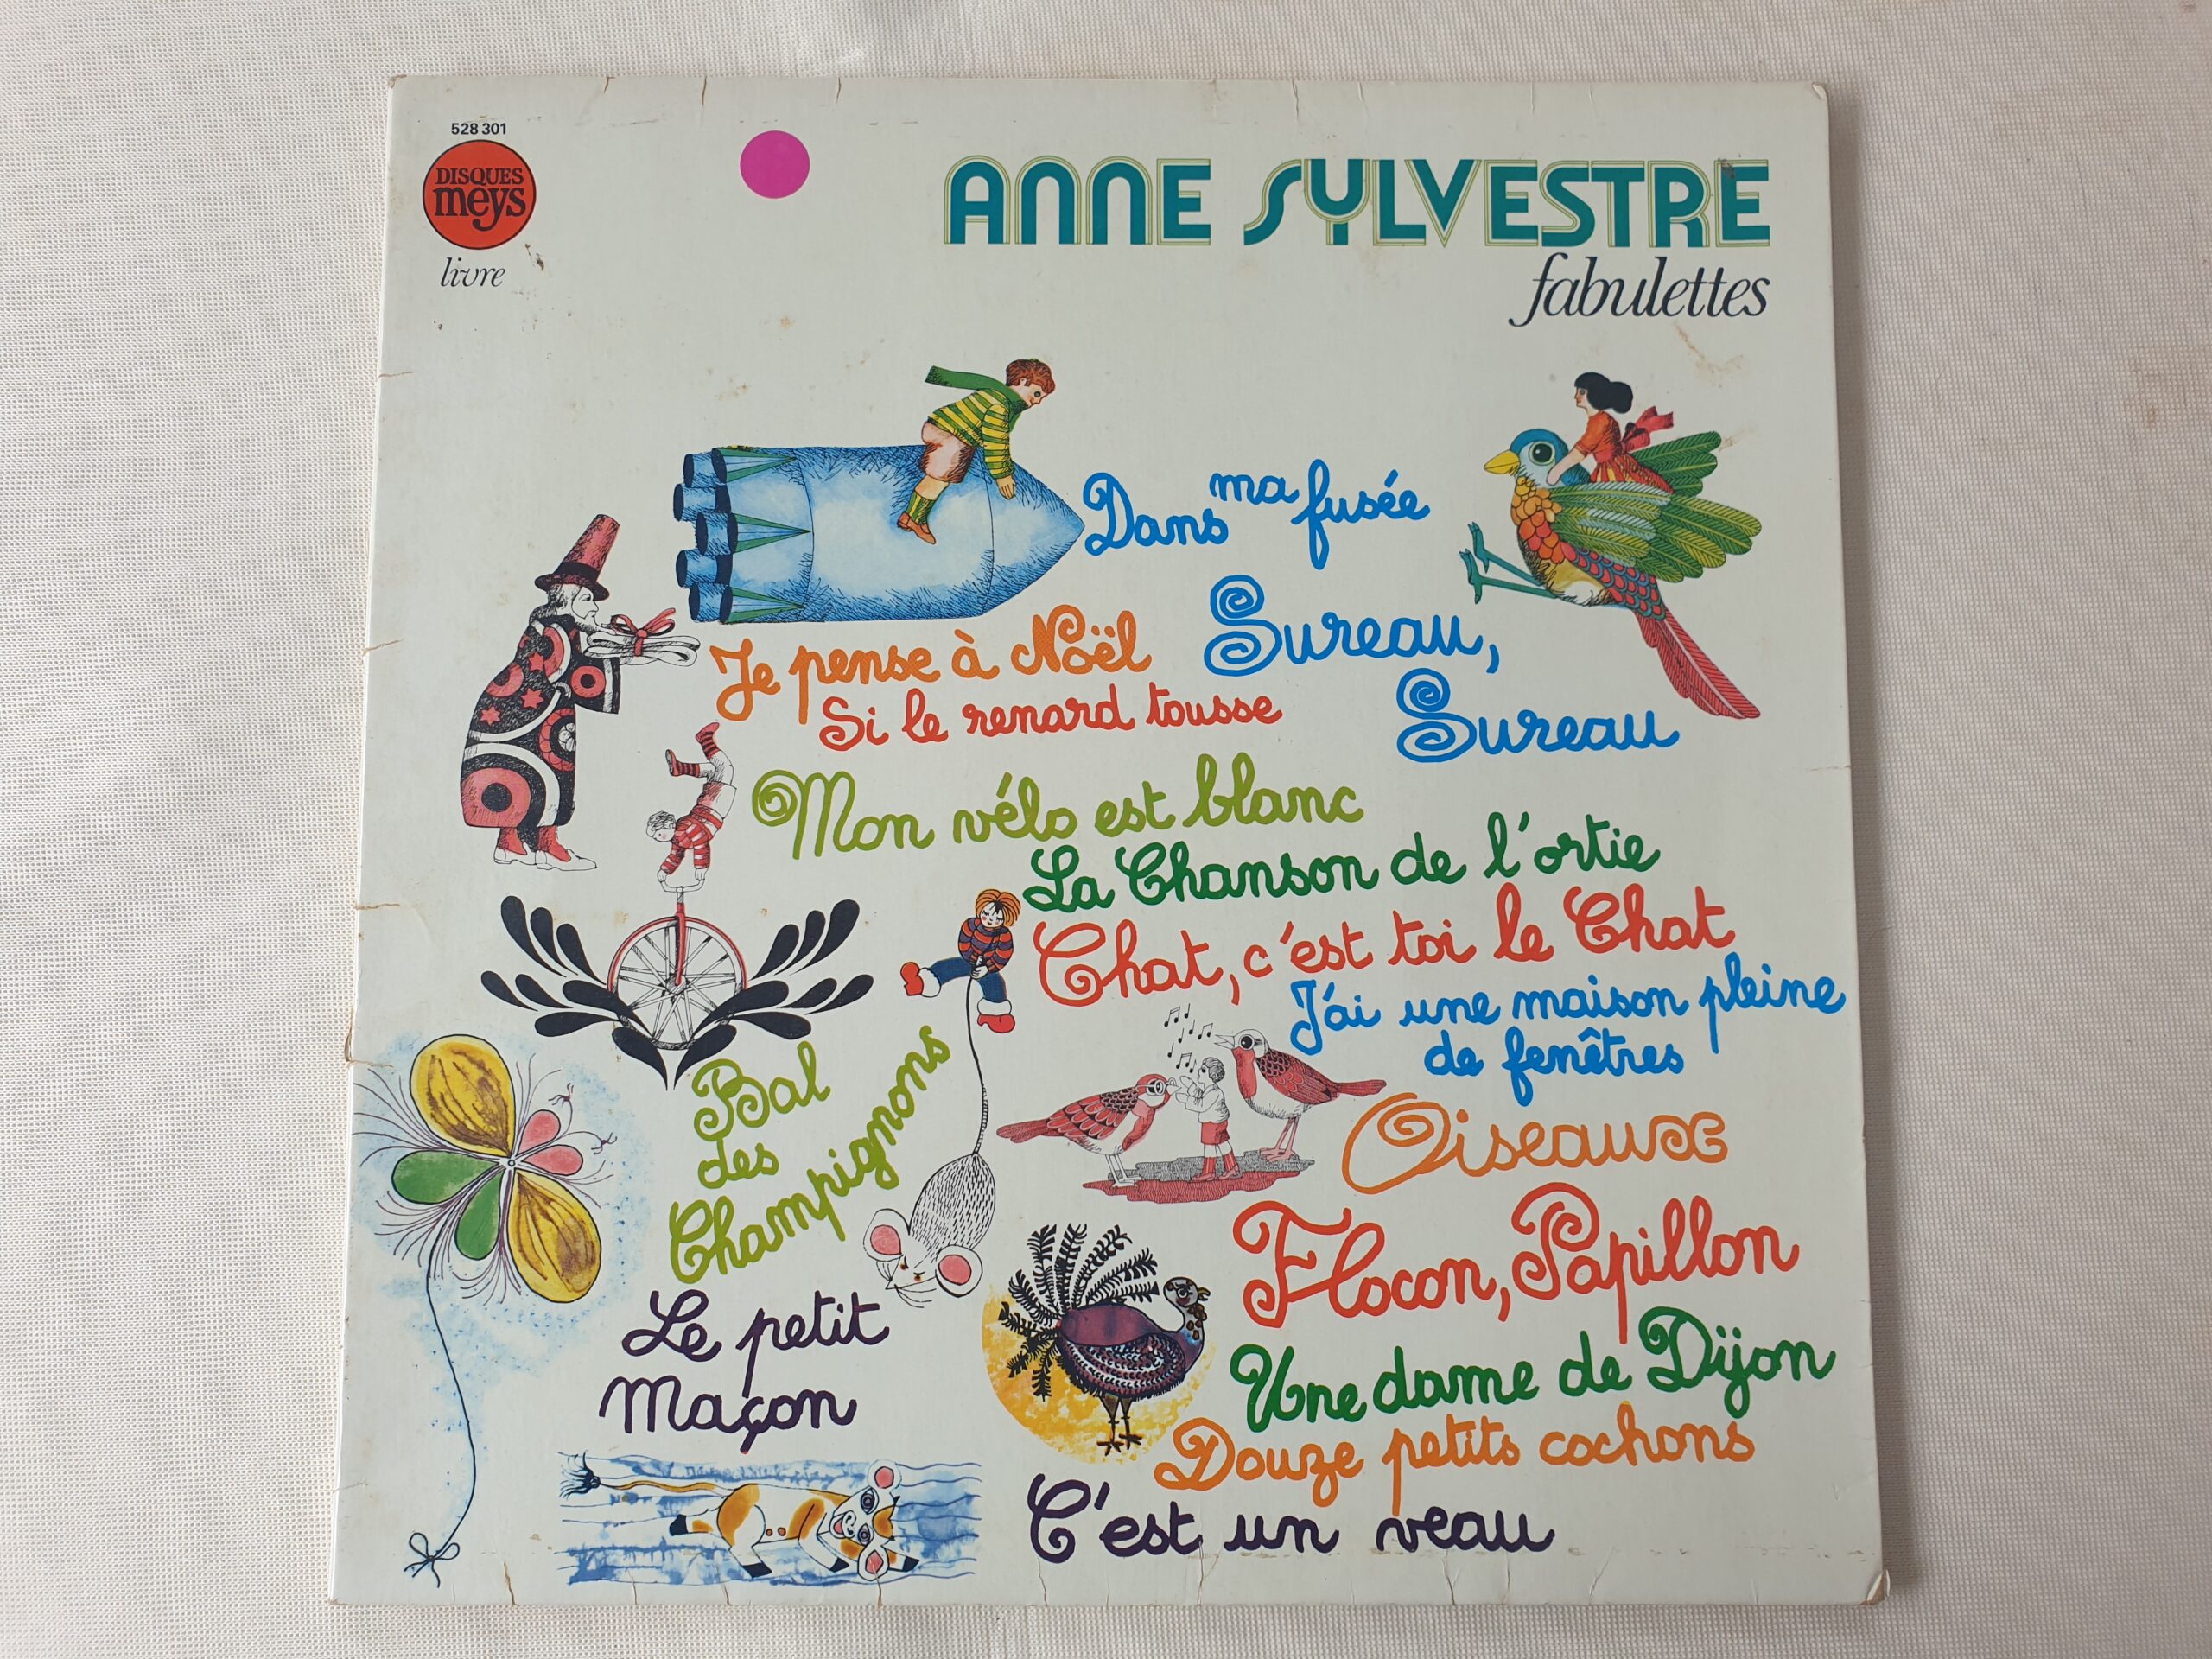 528 301
DISQUES
meys
livre
ANNE SYLVESTRE
fabulettes
Dans ma fusée
Sureau,
Sureau
Je pense à Noël
Si le renard tousse
Mon vélo est blanc
La Chanson de l'ortie
Chat, c'est toi le Chat
J'ai une maison pleine
de fenêtres
Oiseaux
Bal
des
Champignons
Flocon, Papillon
Le petit
Maçon
Une dame de Dijon
Douze petits cochons
C'est un veau